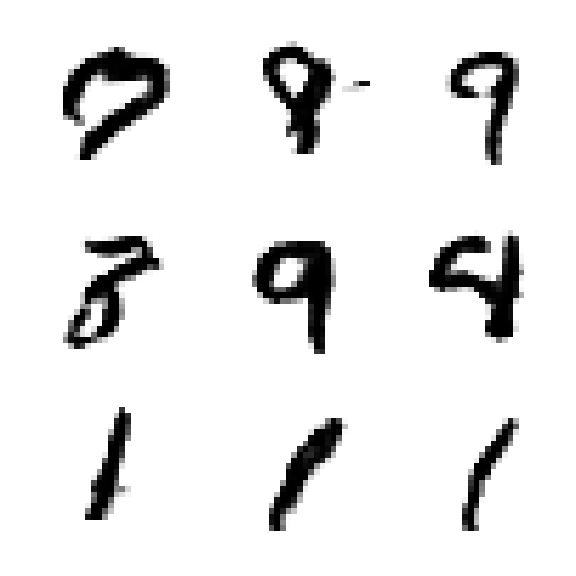 7 8 9
8 9 4
1 1 1